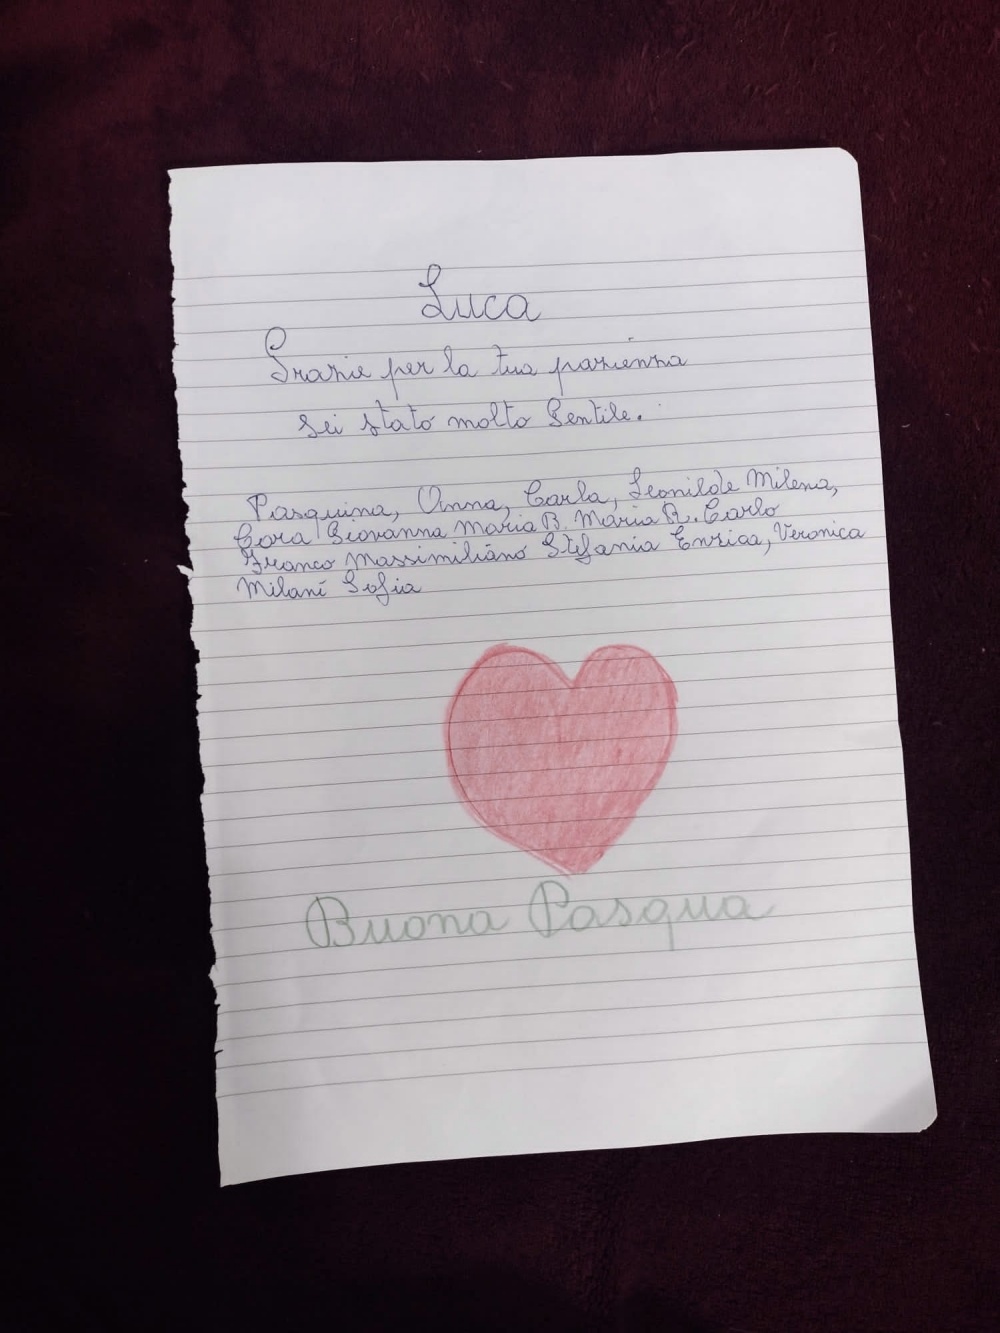 Luca
Grazie per la tua pazienza
sei stato molto Gentile.
Pasquina, Anna, Carla, Leonilde Milena,
Cora Giovanna Maria B. Maria R. Carlo
Franco Massimiliano Stefania Enrica, Veronica
Milani Sofia
Buona Pasqua